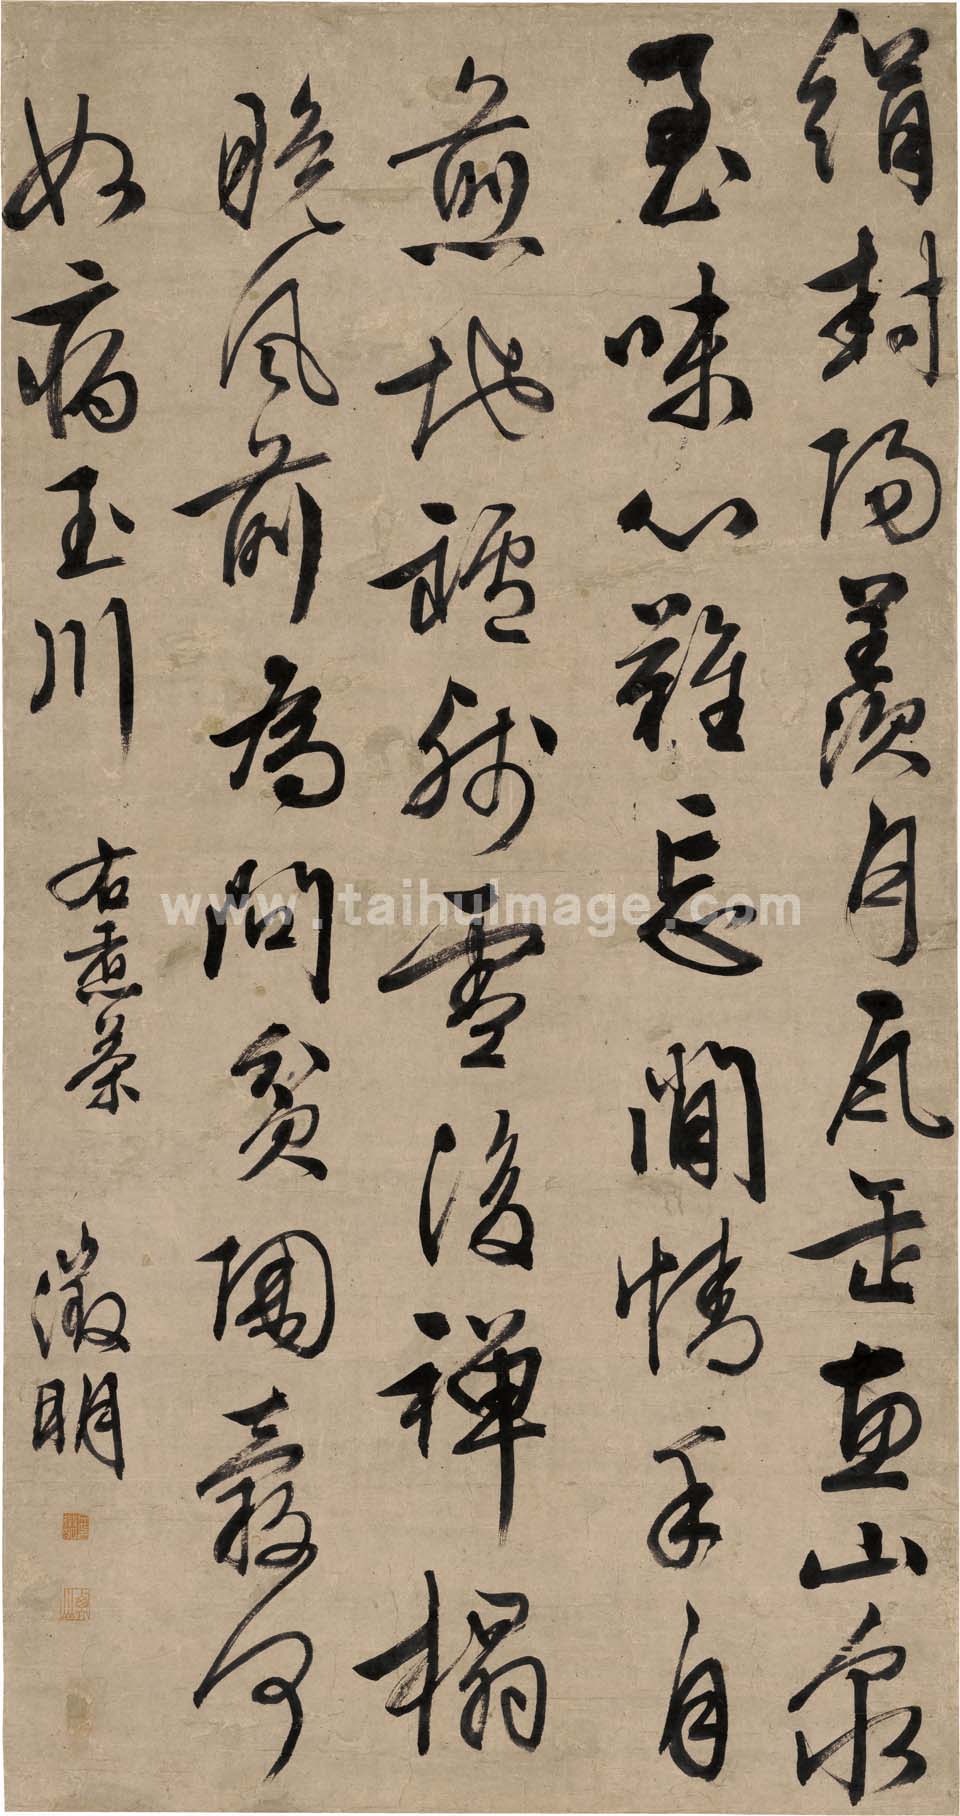 絹封陽羨月瓦缶惠山泉
至味心難忘閒情手自
煎地罏殘雪後禪榻
晚風前為問貧陶穀何
如病玉川 右煮茶 徵明
www.taihuImage.com